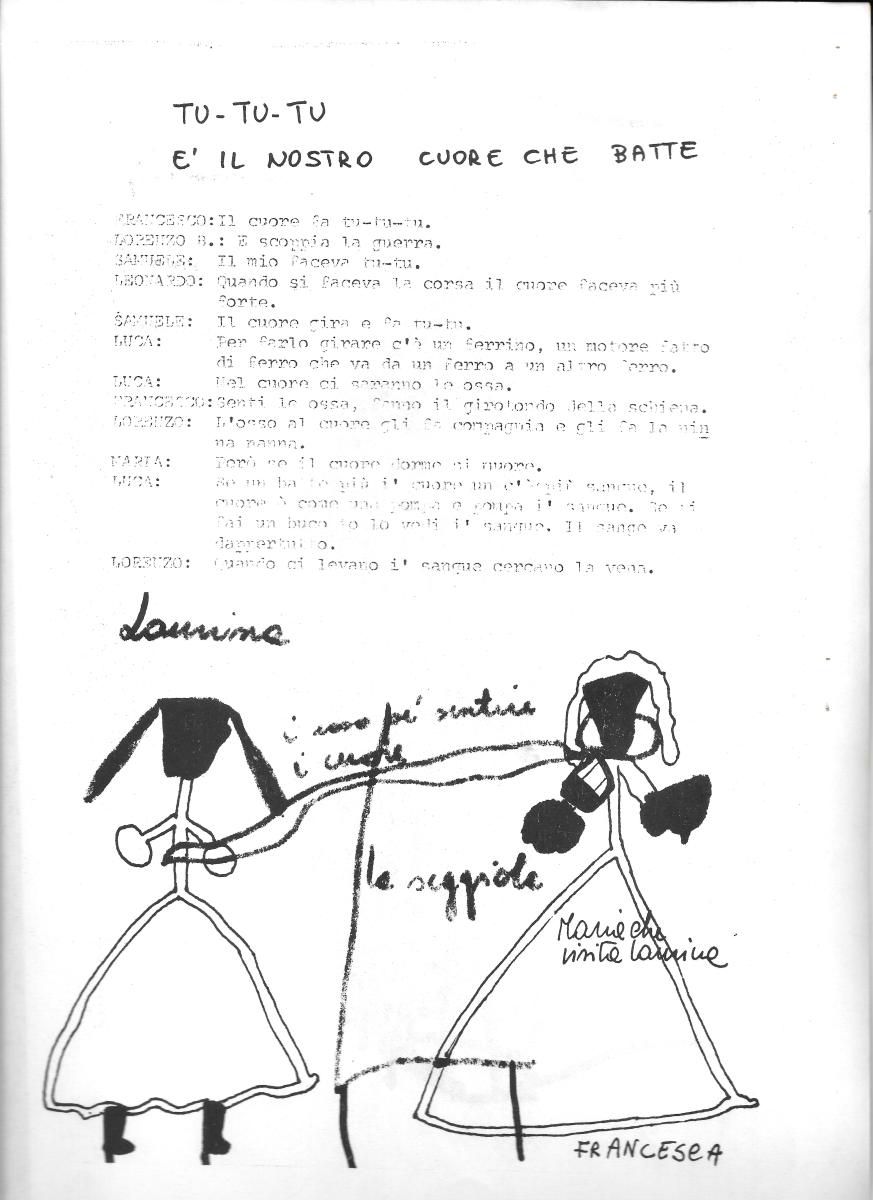 TU-TU-TU
E' IL NOSTRO CUORE CHE BATTE
FRANCESCO: Il cuore fa tu-tu-tu.
LORENZO B.: E scoppia la guerra.
SAMUELE: Il mio faceva tu-tu.
LEONARDO: Quando si faceva la corsa il cuore faceva più
forte.
SAMUELE: Il cuore gira e fa tu-tu.
LUCA: Per farlo girare c'è un ferrino, un motore fatto
di ferro che va da un ferro a un altro ferro.
LUCA: Nel cuore ci saranno le ossa.
FRANCESCO: Senti le ossa, fanno il girotondo della schiena.
LORENZO: L'osso al cuore gli fa compagnia e gli fa la nin
na nanna.
MARIA: Però se il cuore dorme si muore.
LUCA: Se un batte più i' cuore un c'è più sangue, il
cuore è come una pompa e pompa i' sangue. Se ti
fai un buco to lo vedi i' sangue. Il sange va
dappertutto.
LORENZO: Quando ci levano i' sangue cercano la vena.
Laurina
i coso pe' sentire
i cuore
la seggiola
Maria che
visita Laurina
FRANCESCA